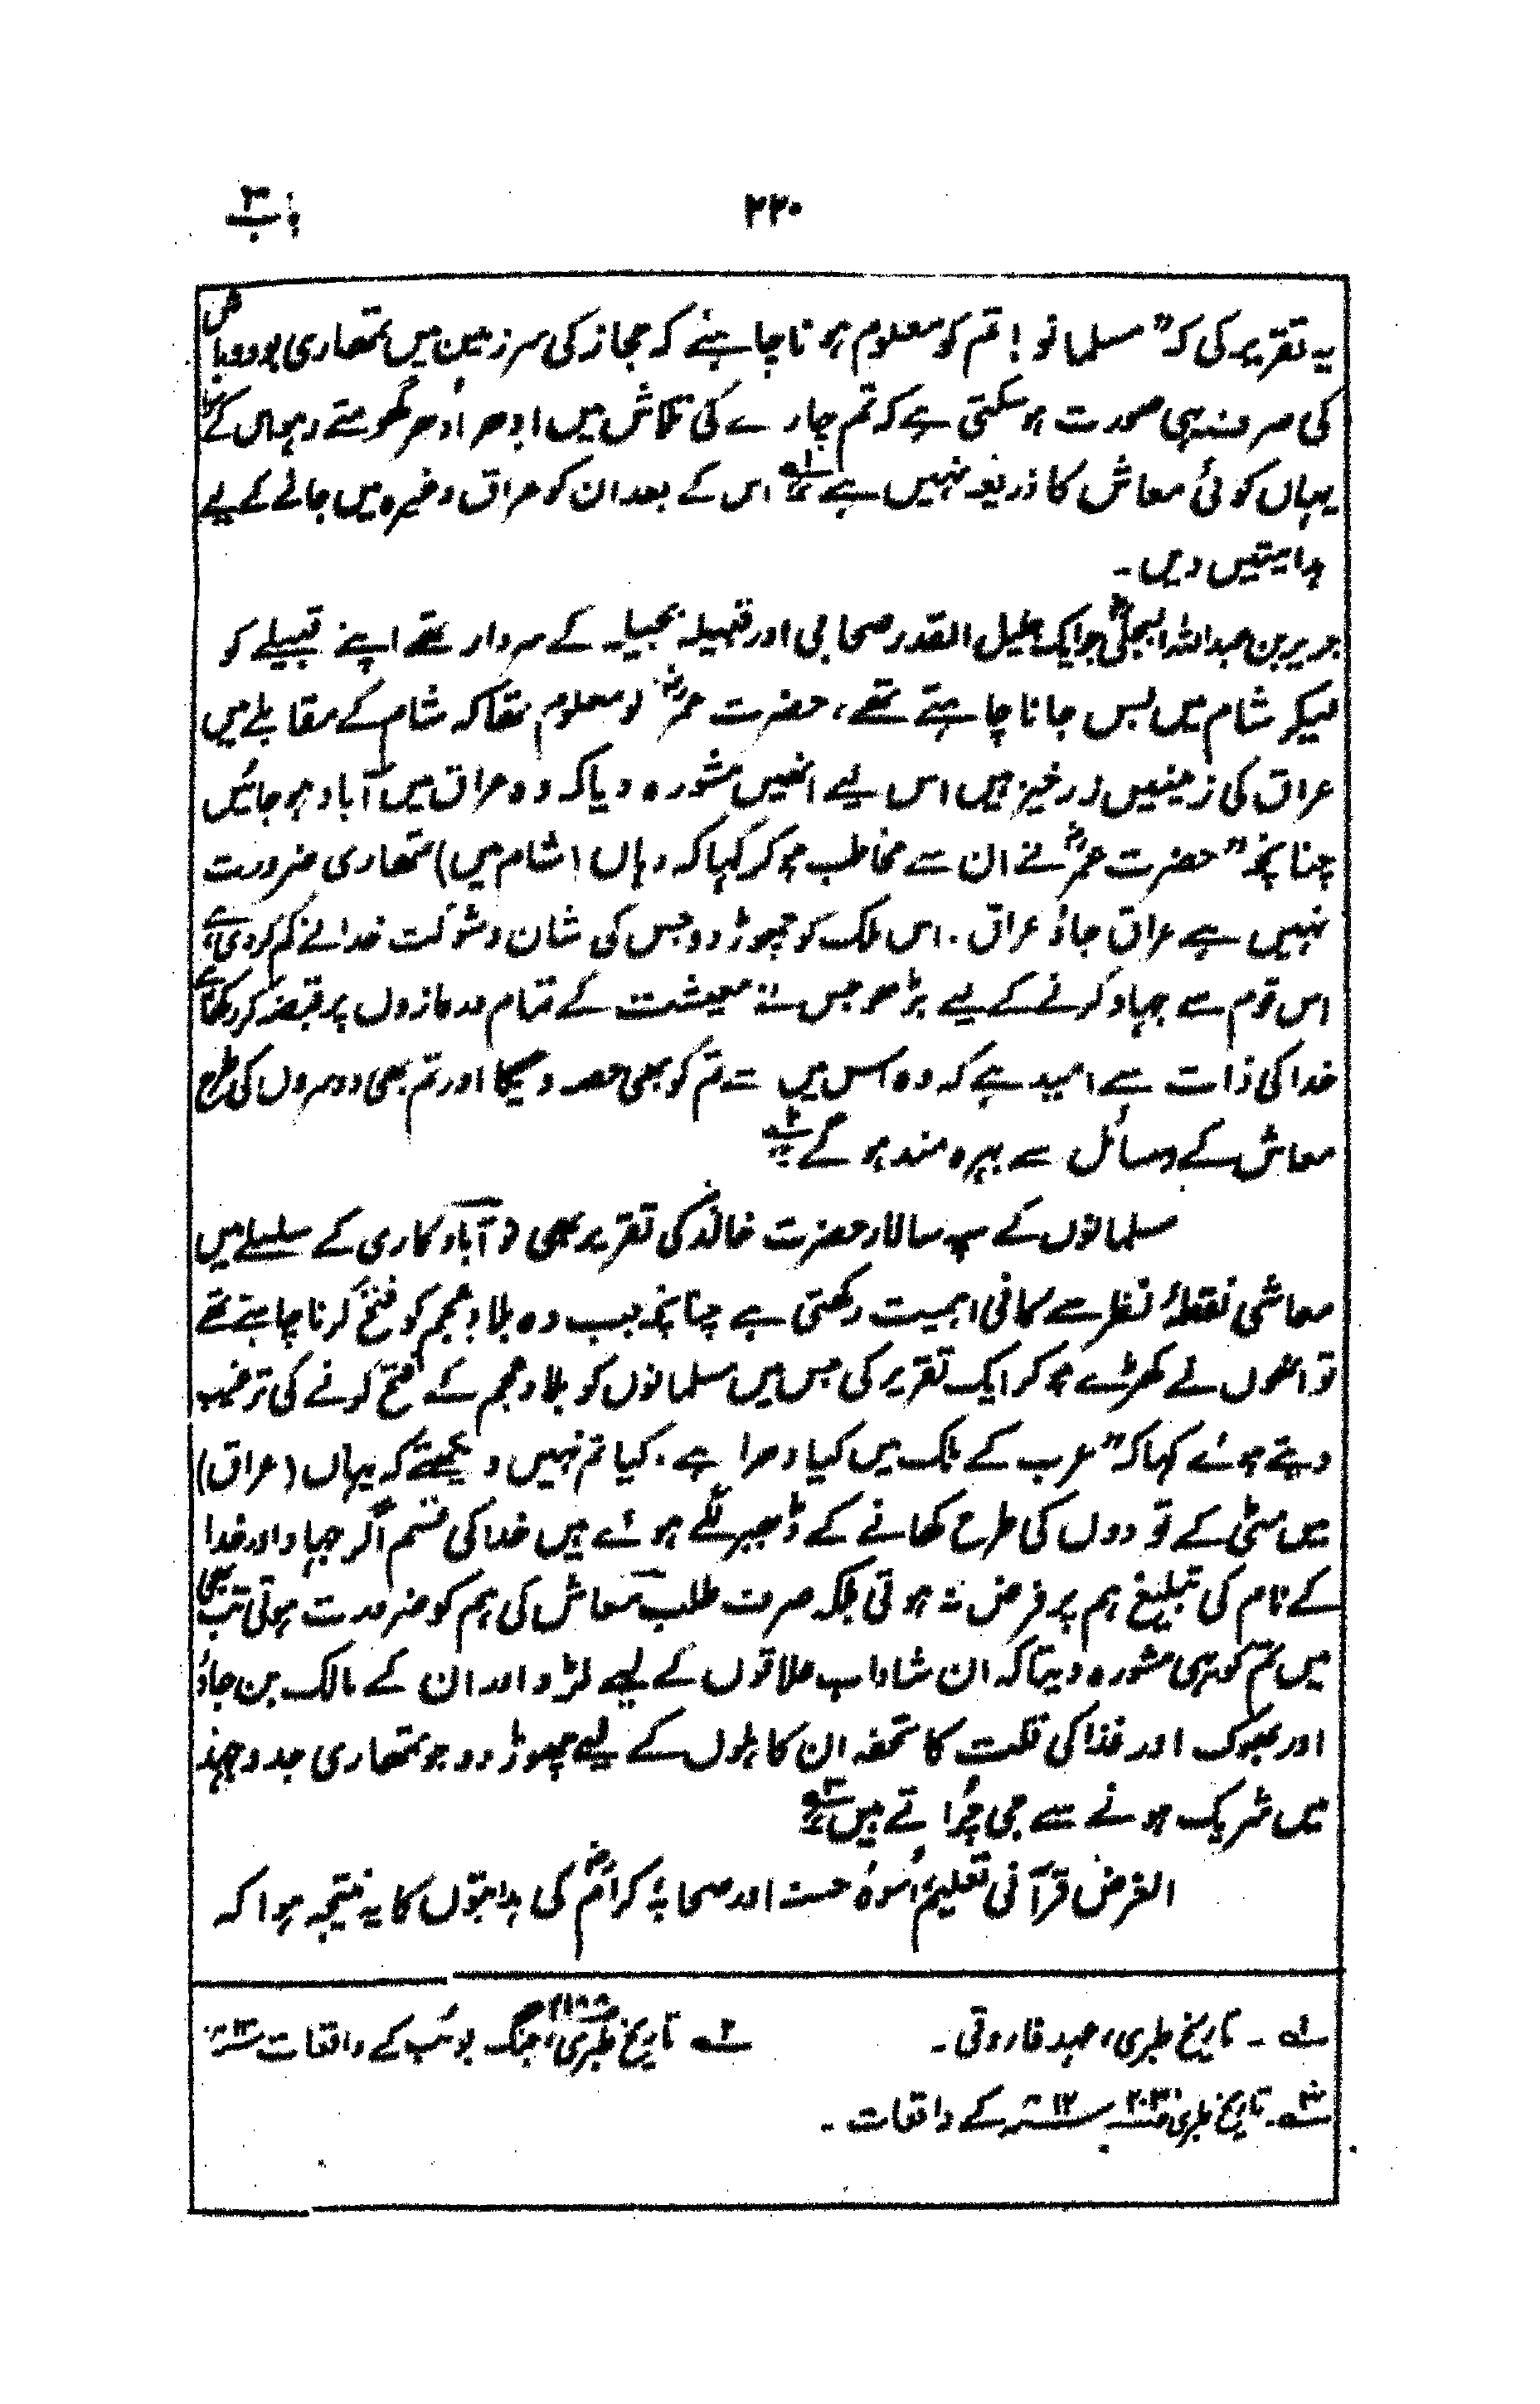 ۲۲۰
باب ۳
یہ تقریر کی کہ ”مسلمانو! تم کو معلوم ہونا چاہئے کہ حجاز کی سرزمین میں تمھاری بود و باش
کی صرف یہی صورت ہو سکتی ہے کہ تم چارے کی تلاش میں ادھر اُدھر گھومتے رہو اس کے سوا
یہاں کوئی معاش کا ذریعہ نہیں ہے“ ۱؎ اس کے بعد ان کو عراق وغیرہ میں جانے کے لیے
ہدایتیں دیں۔
جریر بن عبداللہ البجلیؓ جو ایک جلیل القدر صحابی اور قبیلہ بجیلہ کے سردار تھے اپنے قبیلے کو
لیکر شام میں بس جانا چاہتے تھے، حضرت عمرؓ کو معلوم تھا کہ شام کے مقابلے میں
عراق کی زمینیں زرخیز ہیں اس لیے انھیں مشورہ دیا کہ وہ عراق میں آباد ہو جائیں
چنانچہ ”حضرت عمرؓ نے ان سے مخاطب ہو کر کہا کہ وہاں (شام میں) تمھاری ضرورت
نہیں ہے عراق جاؤ عراق۔ اس ملک کو چھوڑ دو جس کی شان و شوکت خدا نے کم کر دی ہے،
اس قوم سے جہاد کرنے کے لیے بڑھو جس نے معیشت کے تمام دروازوں پر قبضہ کر رکھا ہے
خدا کی ذات سے امید ہے کہ وہ اس میں سے تم کو بھی حصہ دیگا اور تم بھی دوسروں کی طرح
معاش کے وسائل سے بہرہ مند ہو گے“ ۲؎
مسلمانوں کے سپہ سالار حضرت خالدؓ کی تقریر بھی نو آباد کاری کے سلسلے میں
معاشی نقطۂ نظر سے کافی اہمیت رکھتی ہے چنانچہ جب وہ بلاد عجم کو فتح کرنا چاہتے تھے
تو انھوں نے کھڑے ہو کر ایک تقریر کی جس میں مسلمانوں کو بلاد عجم کے فتح کرنے کی ترغیب
دیتے ہوئے کہا کہ ”عرب کے ملک میں کیا دھرا ہے۔ کیا تم نہیں دیکھتے کہ یہاں (عراق)
میں مٹی کے تودوں کی طرح کھانے کے ڈھیر لگے ہوئے ہیں خدا کی قسم اگر جہاد اور خدا
کے نام کی تبلیغ ہم پر فرض نہ ہوتی بلکہ صرف طلب معاش کی ہم کو ضرورت ہوتی تب بھی
میں تم کو یہی مشورہ دیتا کہ ان شاداب علاقوں کے لیے لڑو اور ان کے مالک بن جاؤ
اور بھوک اور غذا کی قلت کا تحفہ ان کاہلوں کے لیے چھوڑ دو جو تمھاری جدوجہد
میں شریک ہونے سے جی چُراتے ہیں“ ۳؎
الغرض قرآنی تعلیم، اُسوۂ حسنہ اور صحابۂ کرامؓ کی ہدایتوں کا یہ نتیجہ ہوا کہ
۱؎۔ تاریخ طبری، عہد فاروقی۔
۲؎ تاریخ طبری، جنگ بویب کے واقعات ۱۳ھ
۳؎۔ تاریخ طبری ص ۲۰۳۱ ۱۲ھ کے واقعات۔